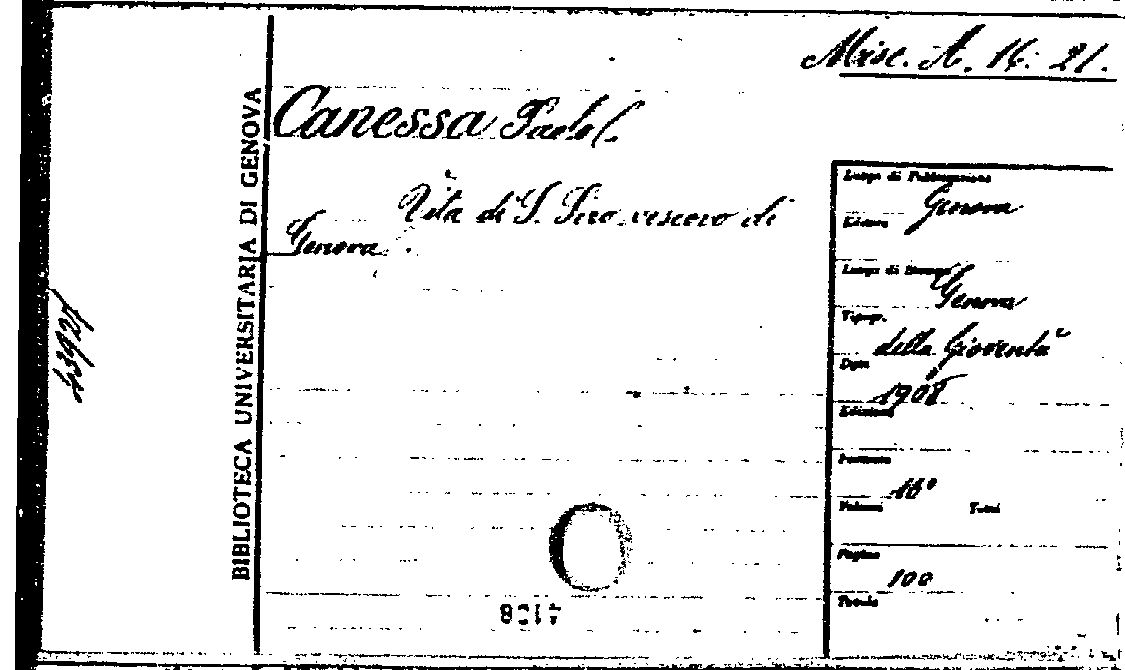 Misc. A. 16. 21.
Canessa Paolo
Vita di S. Siro vescovo di
Genova.
BIBLIOTECA UNIVERSITARIA DI GENOVA
Luogo di Pubblicazione
Genova
Editore
Luogo di Stampa
Genova
Tipogr.
della Gioventù
Data
1908
Edizione
Formato
16°
Volumi Tomi
Pagine
100
Tavole